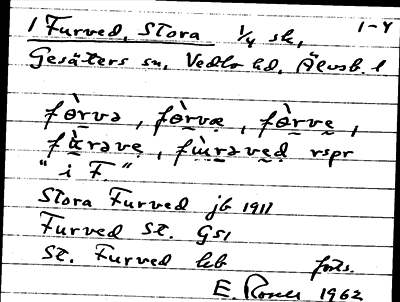 1 Furved, Stora 1/4 sk, 1-4
Gesäters sn, Vedbo hd, Älvsb. l
fo̠rvə, fo̠rvæ, fo̠rvę,
rəvę, rspr
" i F."
Stora Furved jb 1911
Furved St. GS1
St. Furved kb forts.
E. 1962